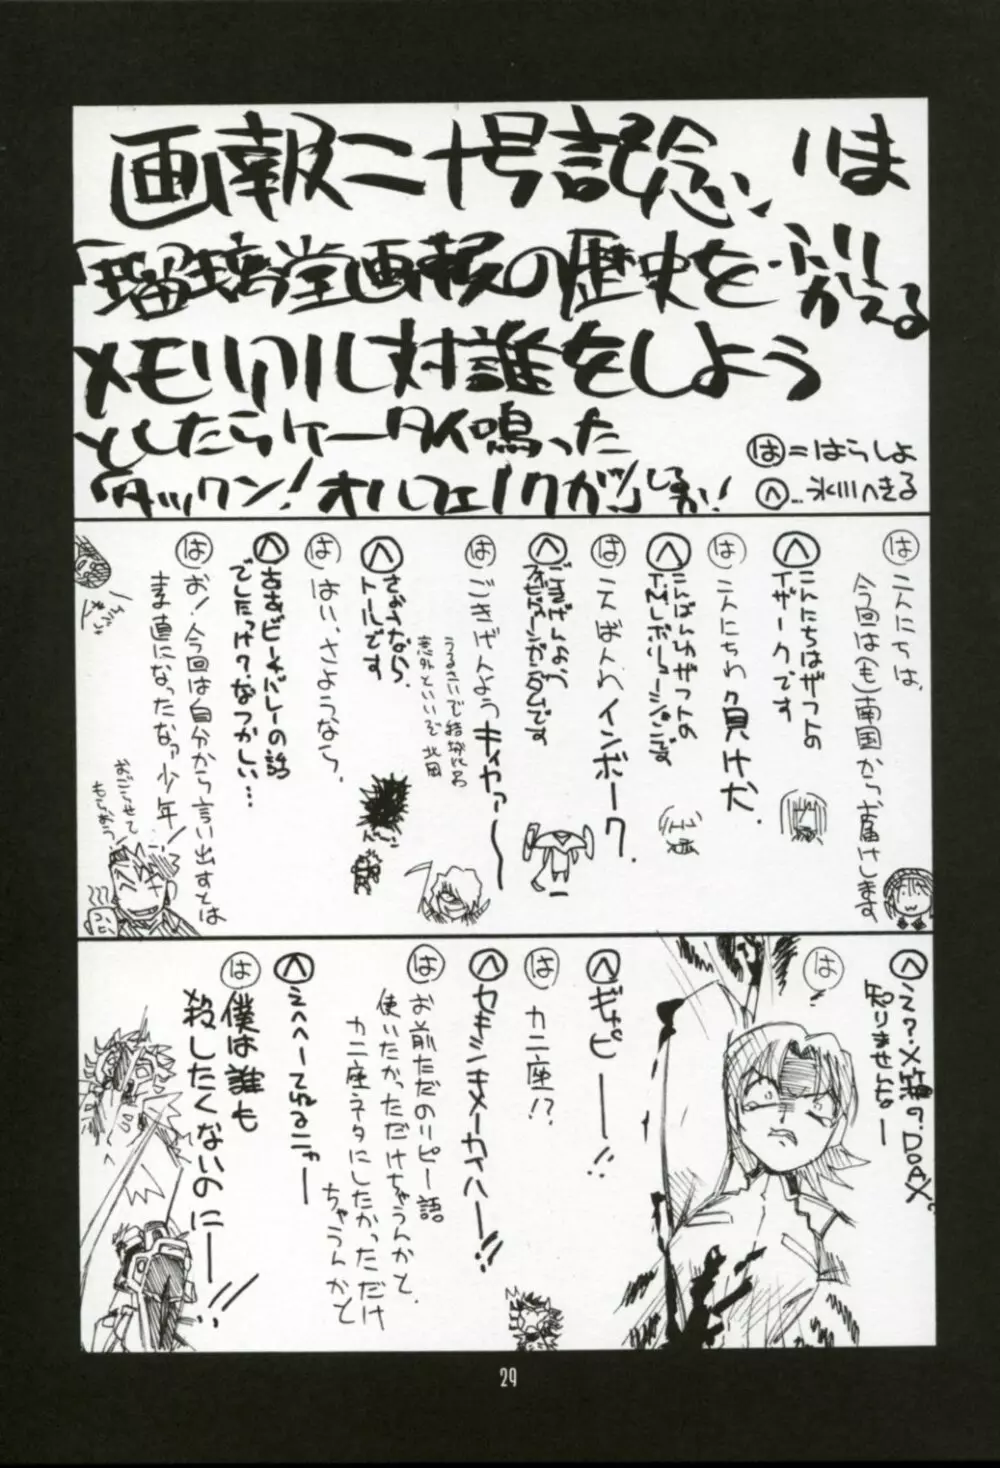 画報二十号記念、いま
瑠璃堂画報の歴史をふりかえる
メモリアル対談をしよう
としたらケータイ鳴った
「タッくン!オルフェノクが!」しるか!
は=はらしよ
へ…氷川へきる
は こんにちは、
今回は(も)南国からお届けします
へ こんにちはザフトの
イザークです
は こんにちわ負け犬.
へ こんばんわザフトの
は こんばんわインボーク.
は ごきげんようキャァ〜
うるさいで結城比呂
意外といいで 北田
へ さようなら、
トールです
は はい、さようなら.
へ ああビーチバレーの話
でしたっけ?なつかしい…
は お!今回は自分から言い出すとは
ま直になったなァ少年!
おごらせて
もらおう!
へ え?X箱の?DOAX?
知りませんよー
は !
へ ギャピー!!
は カニ座!?
へ セキシンキメーカイハー!!
は お前ただのリピー語
使いたかっただけちゃうんかと.
カニ座ネタにしたかっただけ
ちゃうんかと
へ えへへーてれるニャー
は 僕は誰も
殺したくないのにー!!
29